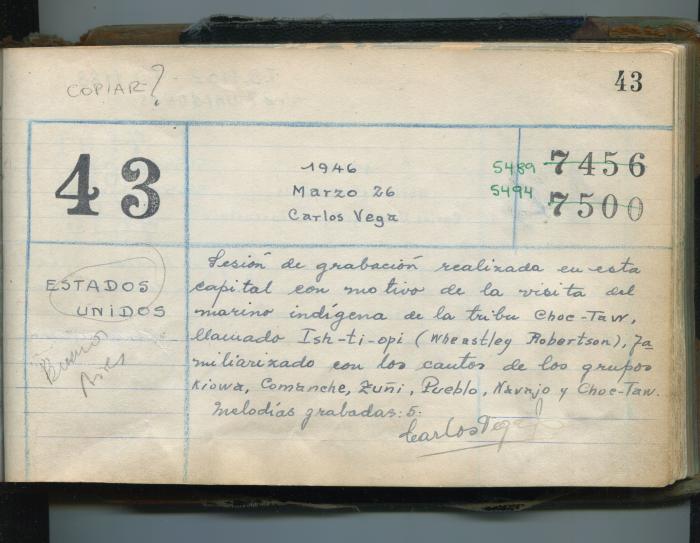 COPIAR?
43
43
1946
Marzo 26
Carlos Vega
5489 7456
5494 7500
ESTADOS
UNIDOS
Buenos
Aires
Sesión de grabación realizada en esta
capital con motivo de la visita del
marino indígena de la tribu Choc-Taw,
llamado Ish-ti-opi (Wheastley Robertson), fa
miliarizado con los cantos de los grupos
Kiowa, Comanche, Zuñi, Pueblo, Navajo y Choc-Taw.
Melodías grabadas: 5.
Carlos Vega